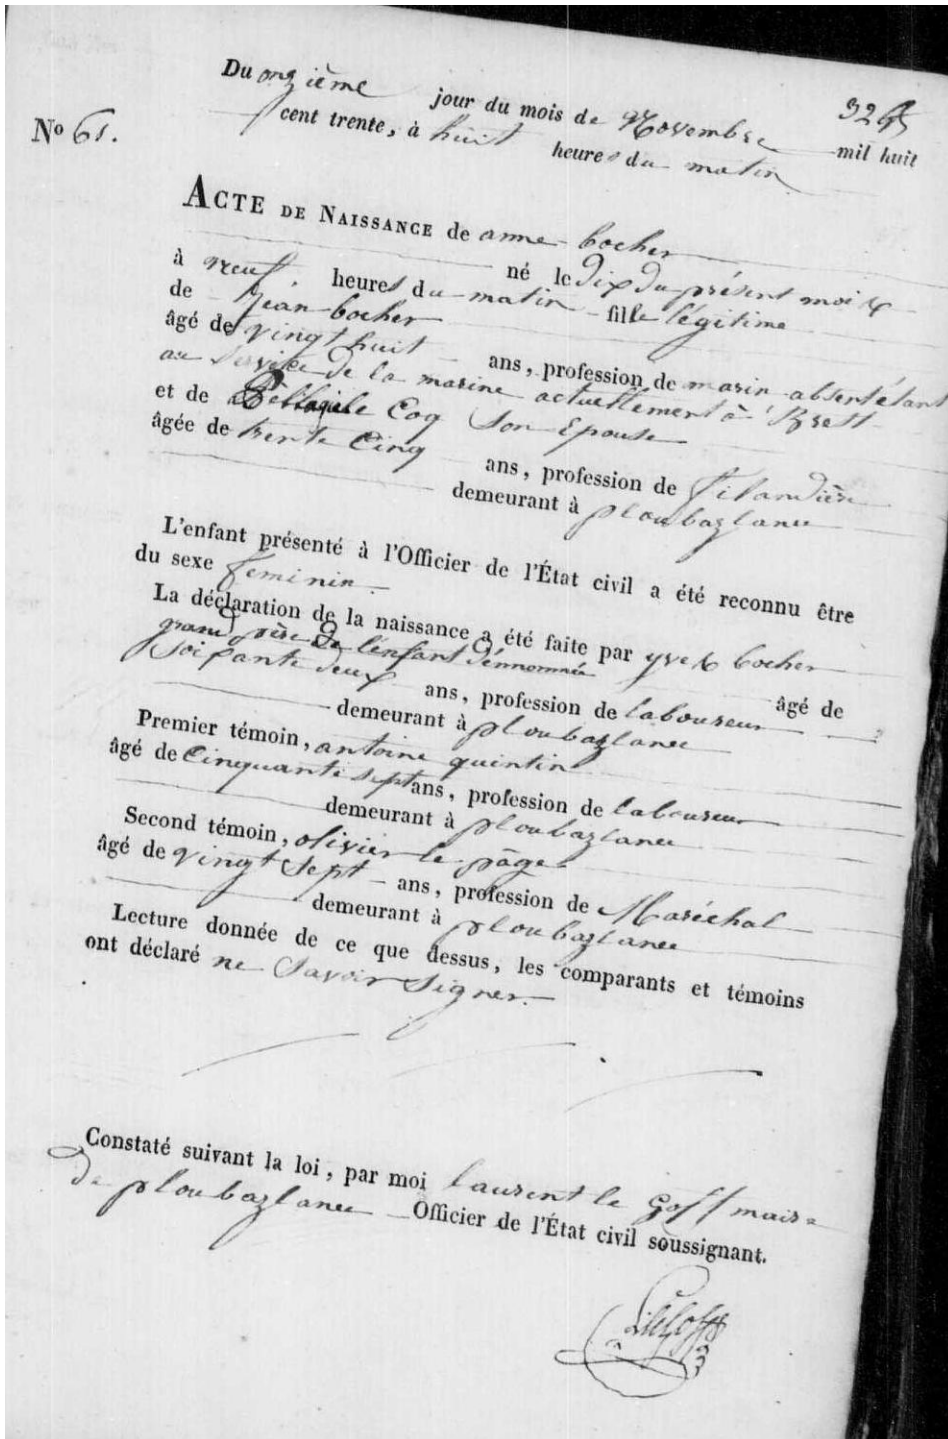 Du onzième jour du mois de Novembre mil huit
cent trente, à huit heures du matin
No 61.
ACTE DE NAISSANCE de anne bocher
né le dix du présent mois
à neuf heures du matin fille légitime
de Jéan bocher
âgé de vingt huit ans, profession de marin absent étant
au Service de la marine actuellement à Brest
et de Pellagie le Coq Son Epouse
âgée de trente Cinq ans, profession de filandière
demeurant à ploubazlanec
L'enfant présenté à l'Officier de l'État civil a été reconnu être
du sexe feminin.
La déclaration de la naissance a été faite par yves bocher
grand père de l'enfant dénommée âgé de
Soixante deux ans, profession de laboureur
demeurant à ploubazlanec
Premier témoin, antoine quintin
âgé de Cinquante sept ans, profession de laboureur
demeurant à ploubazlanec
Second témoin, olivier le page
âgé de vingt Sept ans, profession de Maréchal
demeurant à ploubazlanec
Lecture donnée de ce que dessus, les comparants et témoins
ont déclaré ne Savoir Signer.
Constaté suivant la loi, par moi laurent le Goff maire
de ploubazlanec Officier de l'État civil soussignant.